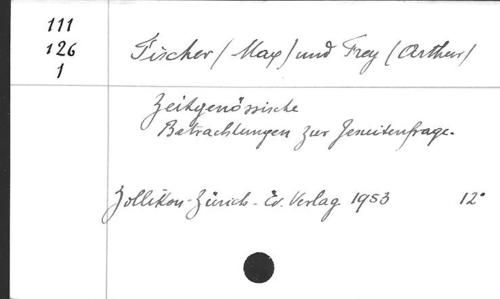 111
126
1
Fischer (Max) und Frey (Arthur)
Zeitgenössische
Betrachtungen zur Jesuitenfrage.
Zollikon-Zürich - Ev. Verlag 1953 12°